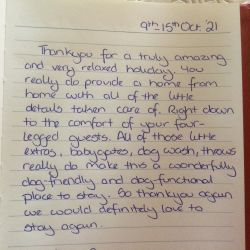 9th-15th Oct '21
Thankyou for a truly amazing
and very relaxed holiday. You
really do provide a home from
home with all of the little
details taken care of. Right down
to the comfort of your four-
legged guests. All of those little
extras, babygates, dog wash, throws
really do make this a wonderfully
dog-friendly and dog-functional
place to stay. So thankyou again
we would definitely love to
stay again.